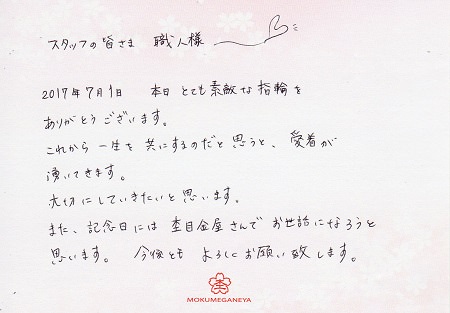 スタッフの皆さま 職人様
2017年7月1日 本日とても素敵な指輪を
ありがとうございます。
これから一生を共にするのだと思うと、愛着が
湧いてきます。
大切にしていきたいと思います。
また、記念日には杢目金屋さんでお世話になろうと
思います。 今後とも よろしくお願い致します。
杢
MOKUMEGANEYA